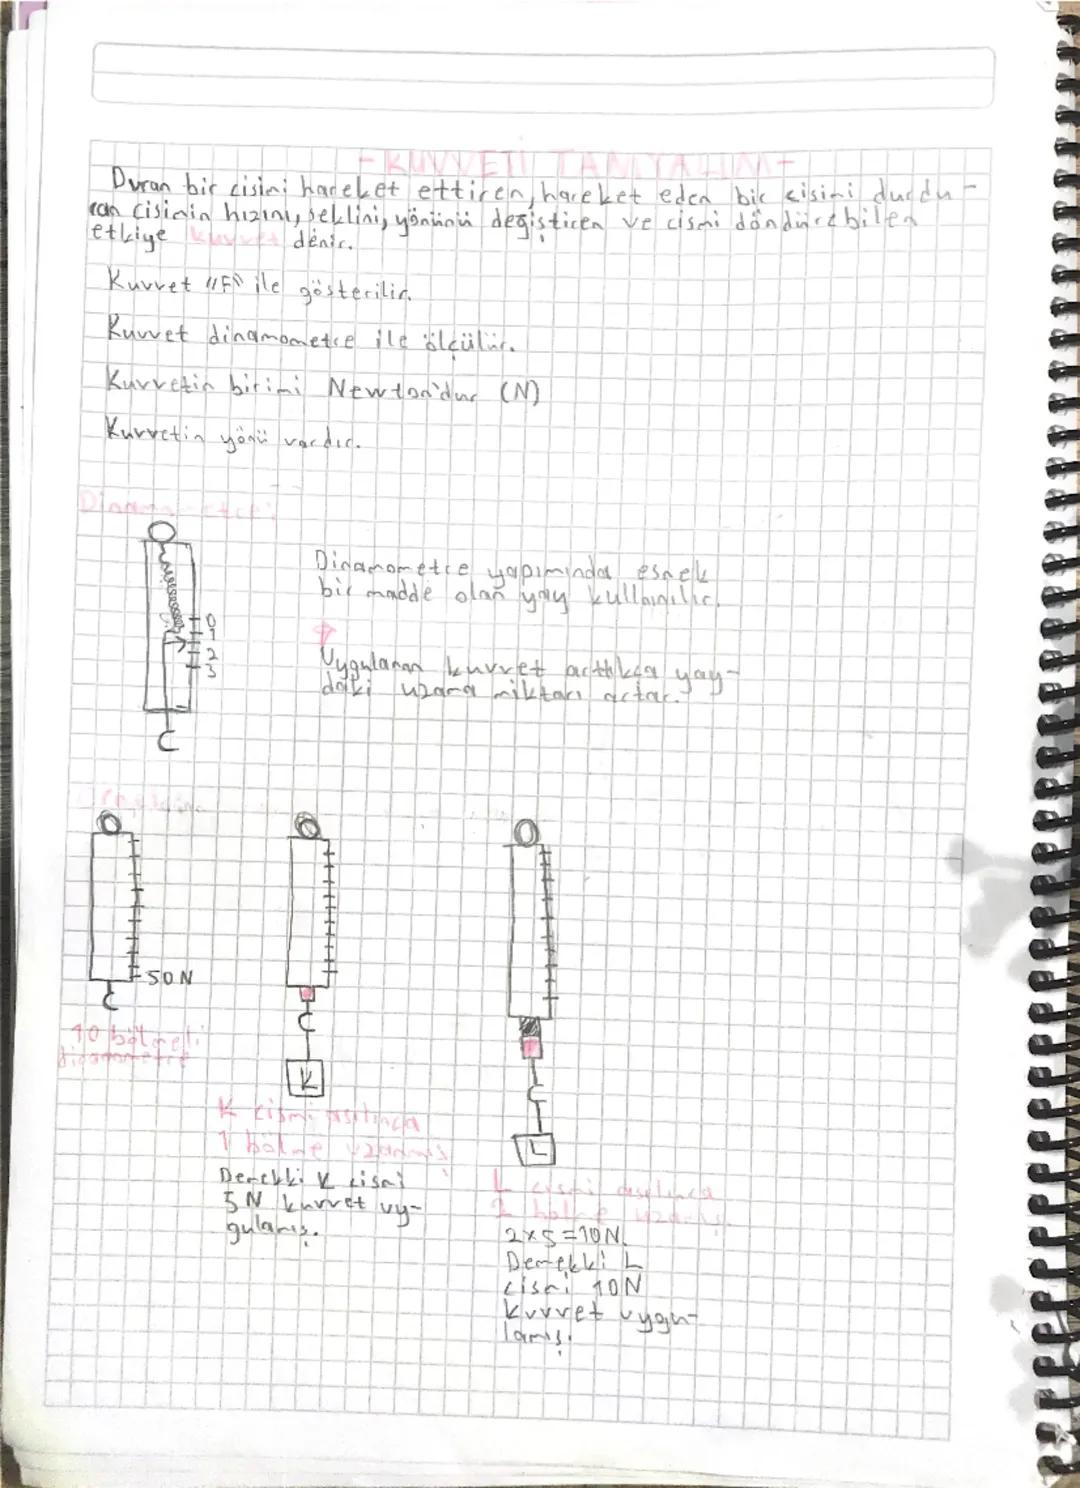 - KUVVETİ TANIYALIM -
Duran bir cisini hareket ettiren, hareket eden bir cisini durdu-
ran cisinin hızını, şeklini, yönünü değiştiren ve cismi döndürebilen
etkiye kuvvet denir.
Kuvvet "F" ile gösterilir.
Kuvvet dinamometre ile ölçülür.
Kuvvetin birimi Newton'dur (N)
Kuvvetin yönü vardır.
Dinamometre:
Dinamometre yapımında esnek
bir madde olan yay kullanılır.
0
1
2
3
Uygulanan kuvvet arttıkça yay-
daki uzama miktarı artar.
50N
10 bölmeli
dinamometre
K
K cismi asılınca
1 bölme uzamış
Demekki K cismi
5 N kuvvet uy-
gulamış.
L
L cismi asılınca
2 bölme uzamış.
2x5=10N.
Demekki L
cismi 10N
kuvvet uygu-
lamış.